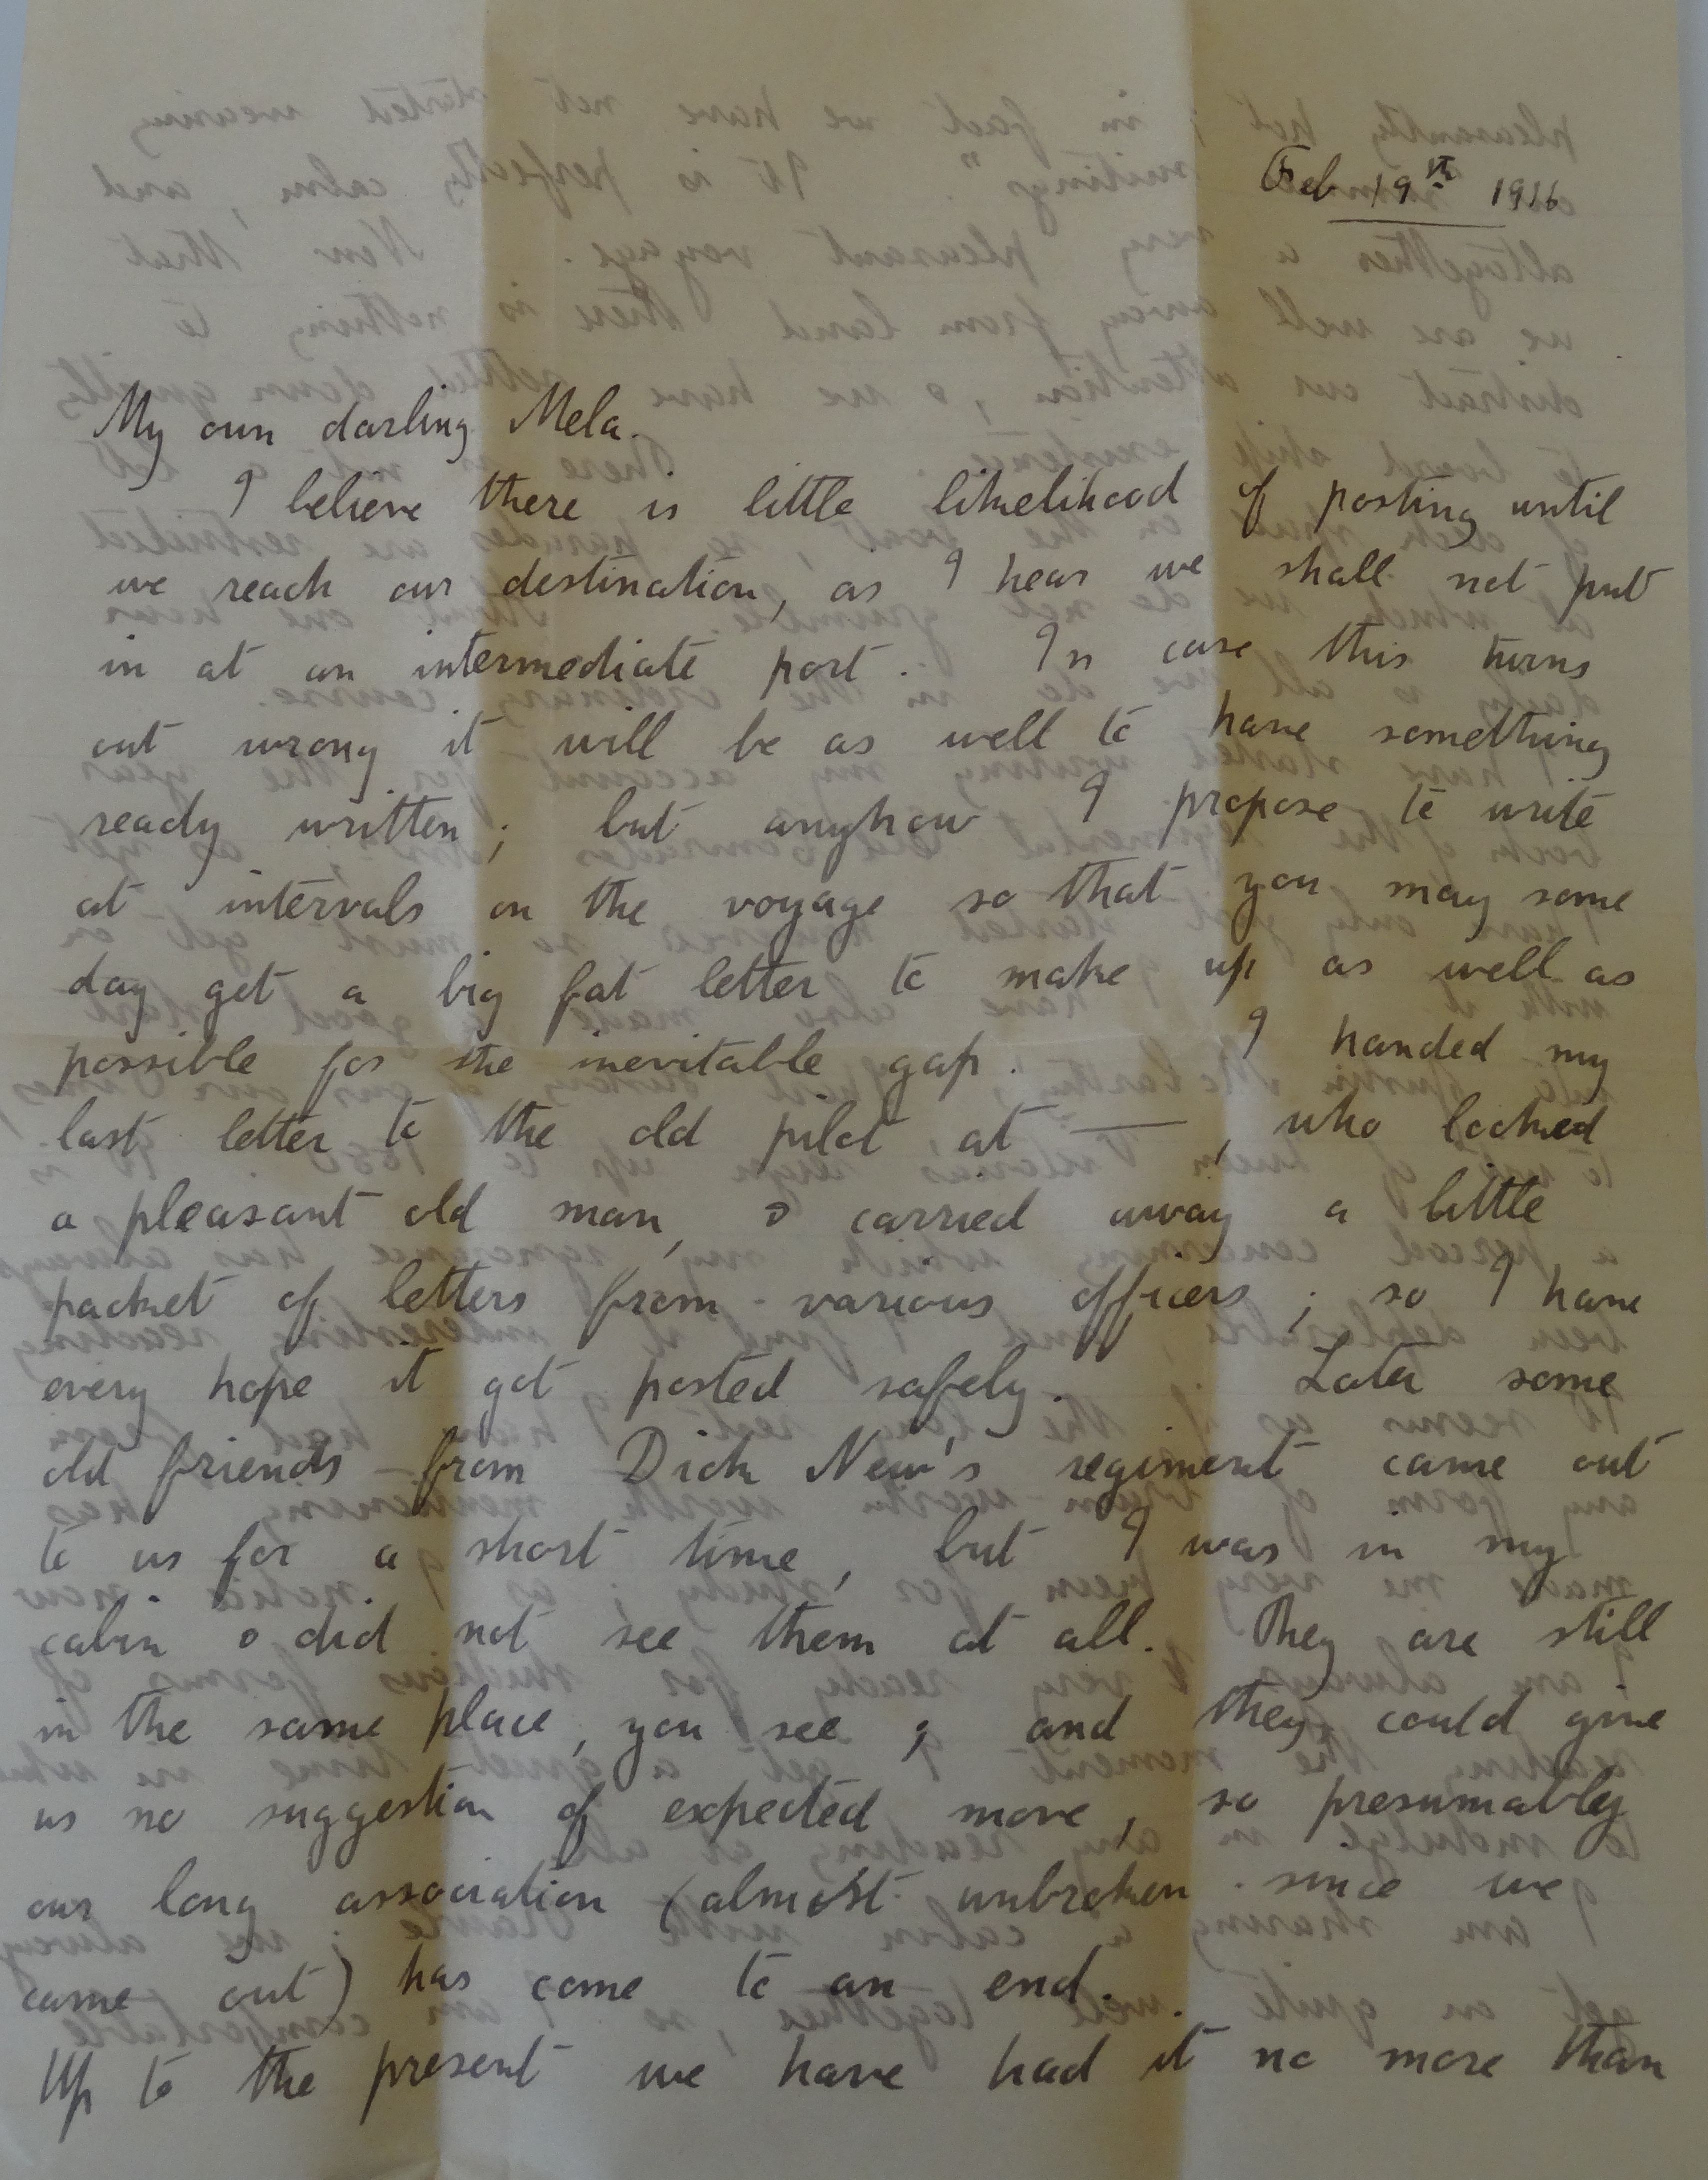 Feb 19th 1916
My own darling Mela.
I believe there is little likelihood of posting until
we reach our destination, as I hear we shall not put
in at an intermediate port. In case this turns
out wrong it will be as well to have something
ready written; but anyhow I propose to write
at intervals on the voyage so that you may some
day get a big fat letter to make up as well as
possible for the inevitable gap. I handed my
last letter to the old pilot at ——, who looked
a pleasant old man, & carried away a little
packet of letters from various officers; so I have
every hope it got posted safely. Later some
old friends from Dick New's regiment came out
to us for a short time, but I was in my
cabin & did not see them at all. They are still
in the same place, you see; and they could give
us no suggestion of expected move, so presumably
our long association (almost unbroken since we
came out) has come to an end.
Up to the present we have had it no more than